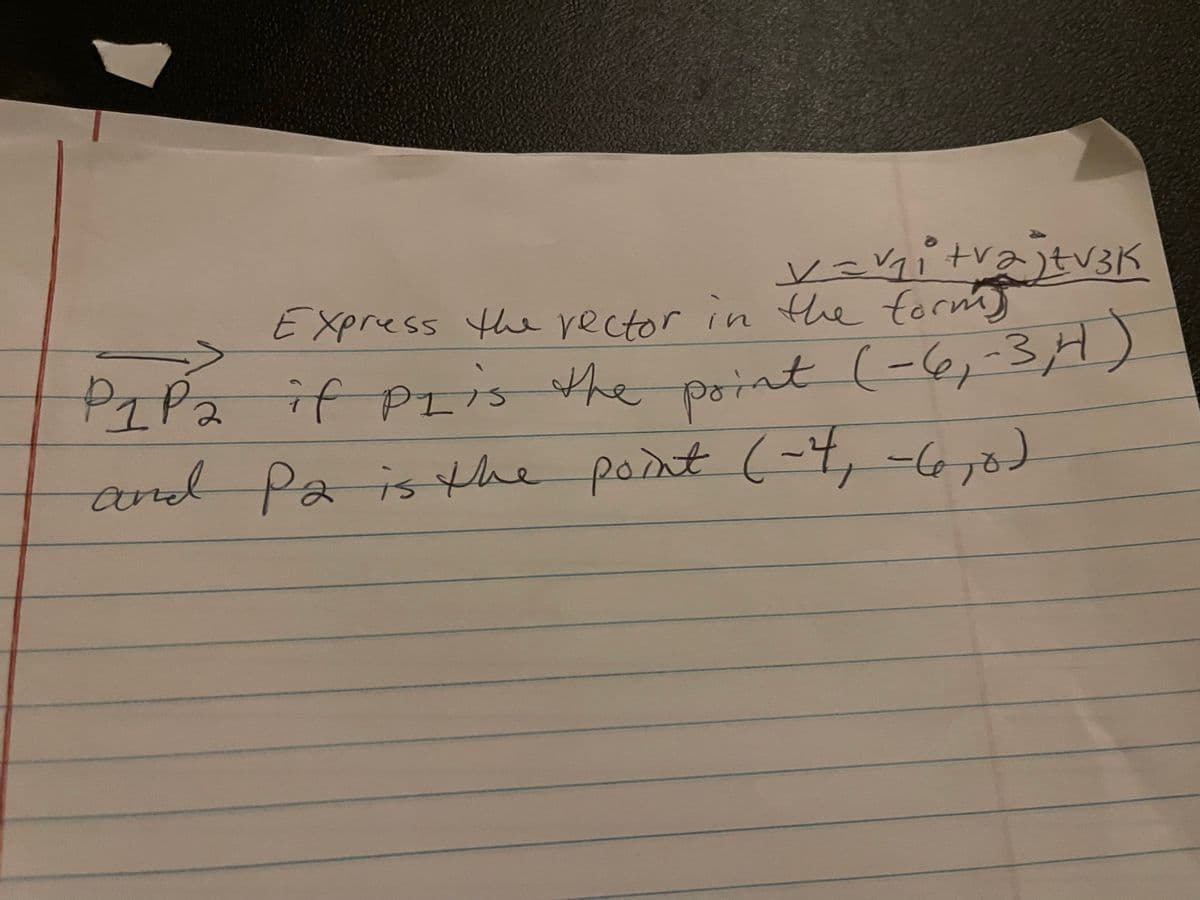 v = v1i + v2j + v3k
Express the vector in the form
P1P2 if P1 is the point (-6, -3, 4)
and P2 is the point (-4, -6, 0)